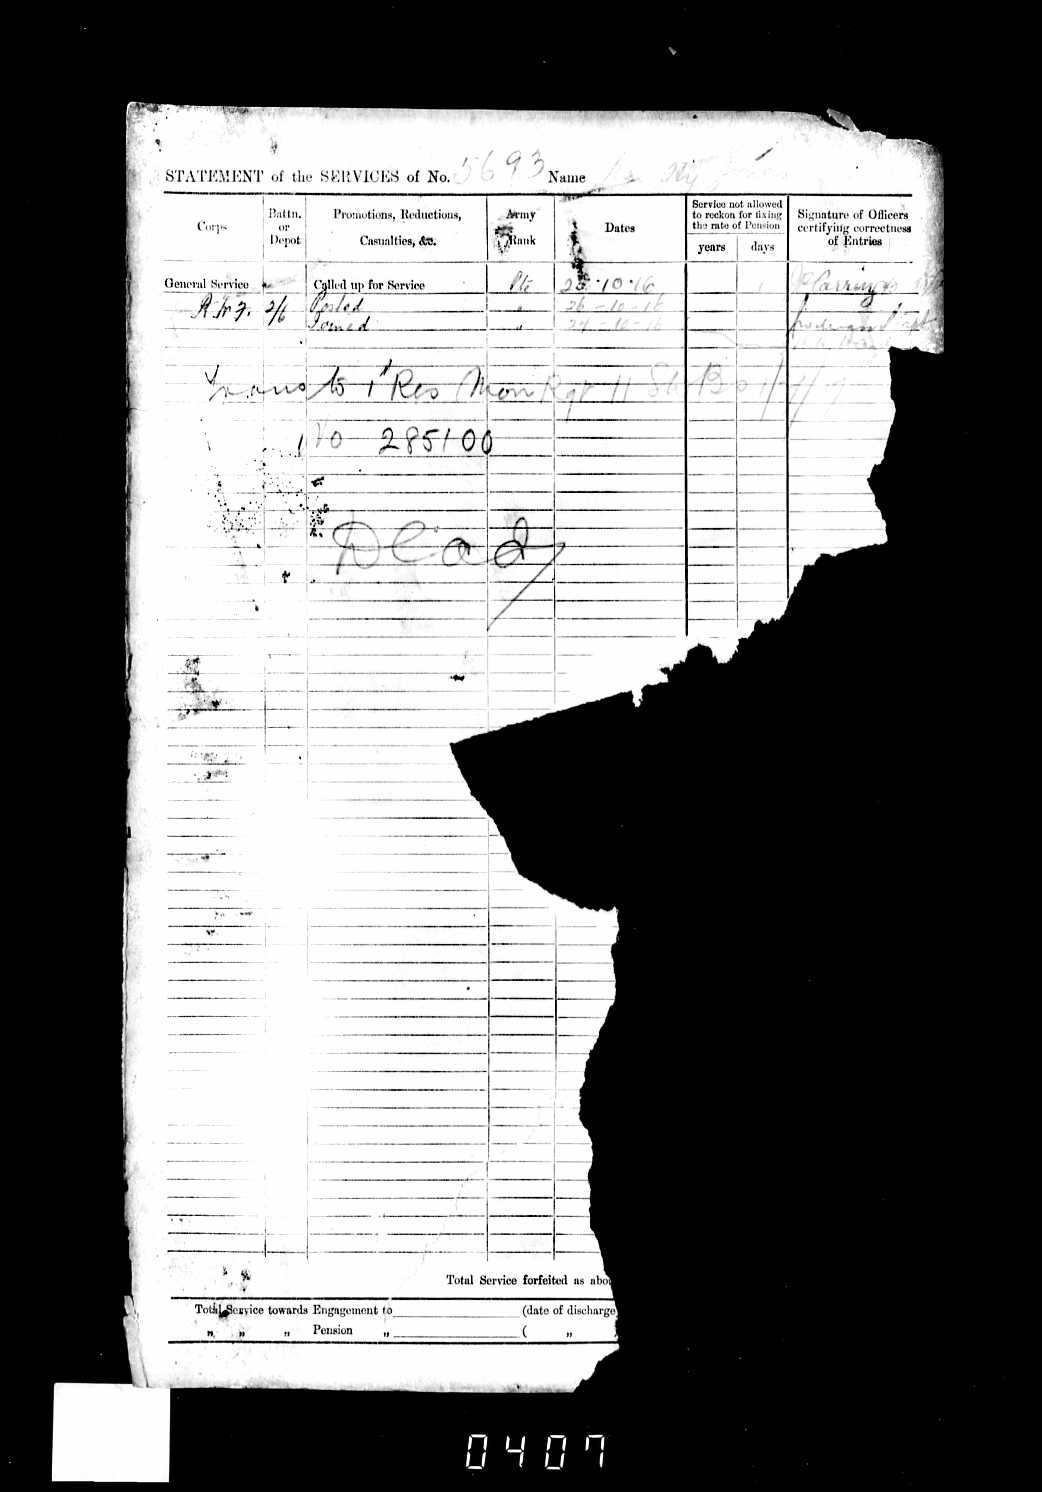 STATEMENT of the SERVICES of No. 5693 Name
Corps
Battn. or Depot
Promotions, Reductions, Casualties, &c.
Army Rank
Dates
Service not allowed to reckon for fixing the rate of Pension
years days
Signature of Officers certifying correctness of Entries
General Service Called up for Service Pte 25·10·16
2/6 Posted " 26-10-16
Joined " 27-10-16
Trans to 1st Res Mon Rgt
No 285100
Dead
Total Service forfeited as abo
Total Service towards Engagement to (date of discharge
" " " Pension " ( "
0407